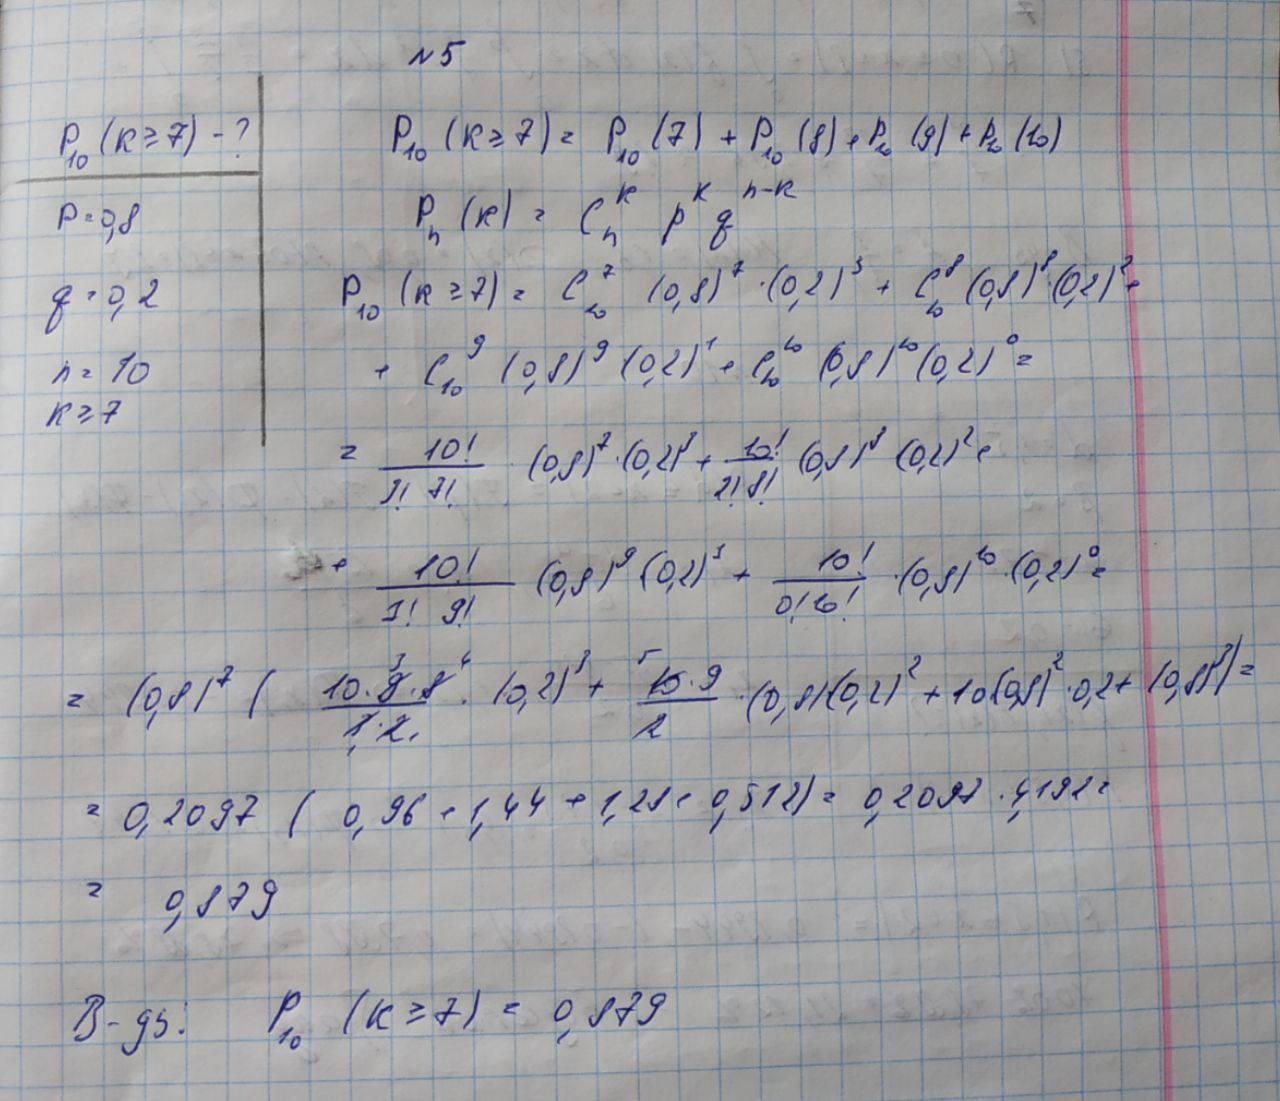 N5
P₁₀ (к ≥ 7) - ?
P = 0,8
q = 0,2
n = 10
к ≥ 7
P₁₀ (к ≥ 7) = P₁₀ (7) + P₁₀ (8) + P₁₀ (9) + P₁₀ (10)
Pₙ (к) = Cₙᵏ pᵏ qⁿ⁻ᵏ
P₁₀ (к ≥ 7) = C₁₀⁷ (0,8)⁷ · (0,2)³ + C₁₀⁸ (0,8)⁸ · (0,2)² +
+ C₁₀⁹ (0,8)⁹ (0,2)¹ + C₁₀¹⁰ (0,8)¹⁰ (0,2)⁰ =
= 10! / 3! 7! · (0,8)⁷ · (0,2)³ + 10! / 2! 8! (0,8)⁸ (0,2)² +
+ 10! / 1! 9! (0,8)⁹ (0,2)¹ + 10! / 0! 10! · (0,8)¹⁰ · (0,2)⁰ =
= (0,8)⁷ ( 10 · 9 · 8 / 3 · 2 · (0,2)³ + 10 · 9 / 2 · (0,8)(0,2)² + 10(0,8)² · 0,2 + (0,8)³) =
= 0,2097 ( 0,96 + 1,44 + 1,28 + 0,512) = 0,2097 · 4,192 =
= 0,879
В-дь: P₁₀ (к ≥ 7) = 0,879